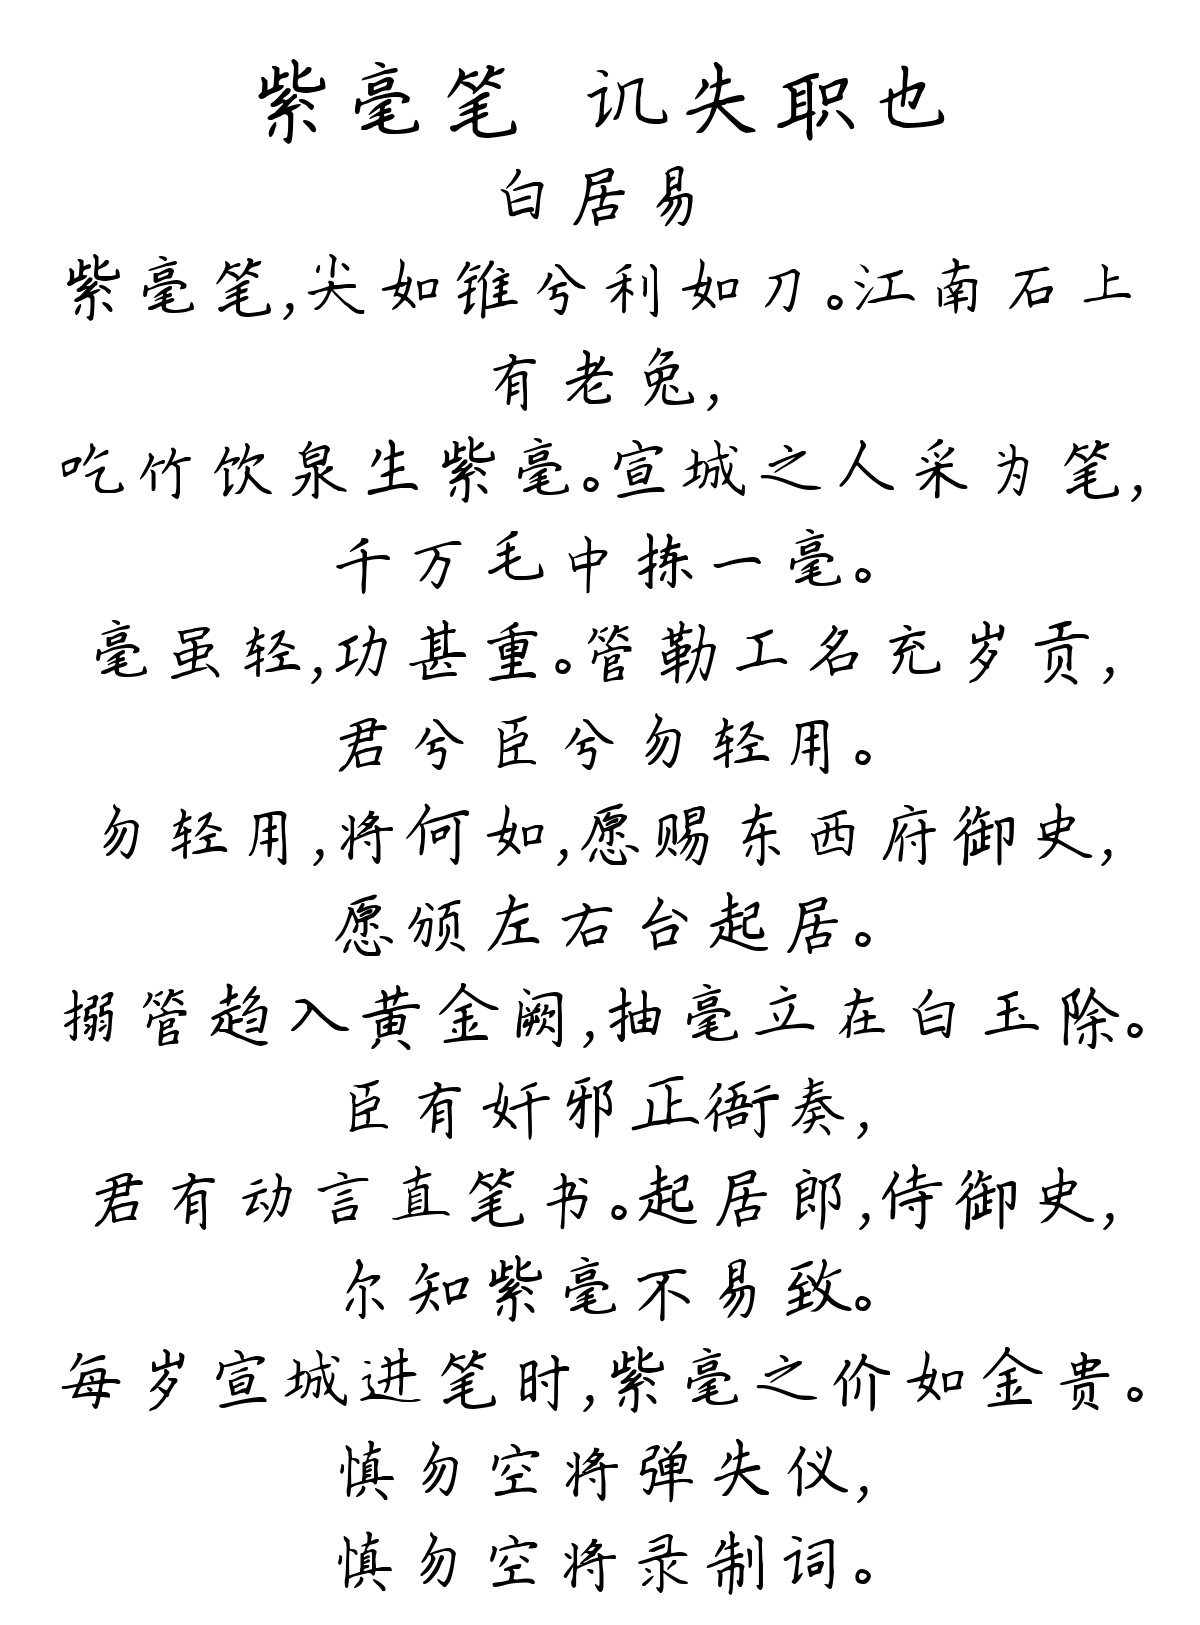 紫毫笔 讥失职也
白居易
紫毫笔,尖如锥兮利如刀。江南石上
有老兔,
吃竹饮泉生紫毫。宣城之人采为笔,
千万毛中拣一毫。
毫虽轻,功甚重。管勒工名充岁贡,
君兮臣兮勿轻用。
勿轻用,将何如,愿赐东西府御史,
愿颁左右台起居。
搦管趋入黄金阙,抽毫立在白玉除。
臣有奸邪正衙奏,
君有动言直笔书。起居郎,侍御史,
尔知紫毫不易致。
每岁宣城进笔时,紫毫之价如金贵。
慎勿空将弹失仪,
慎勿空将录制词。